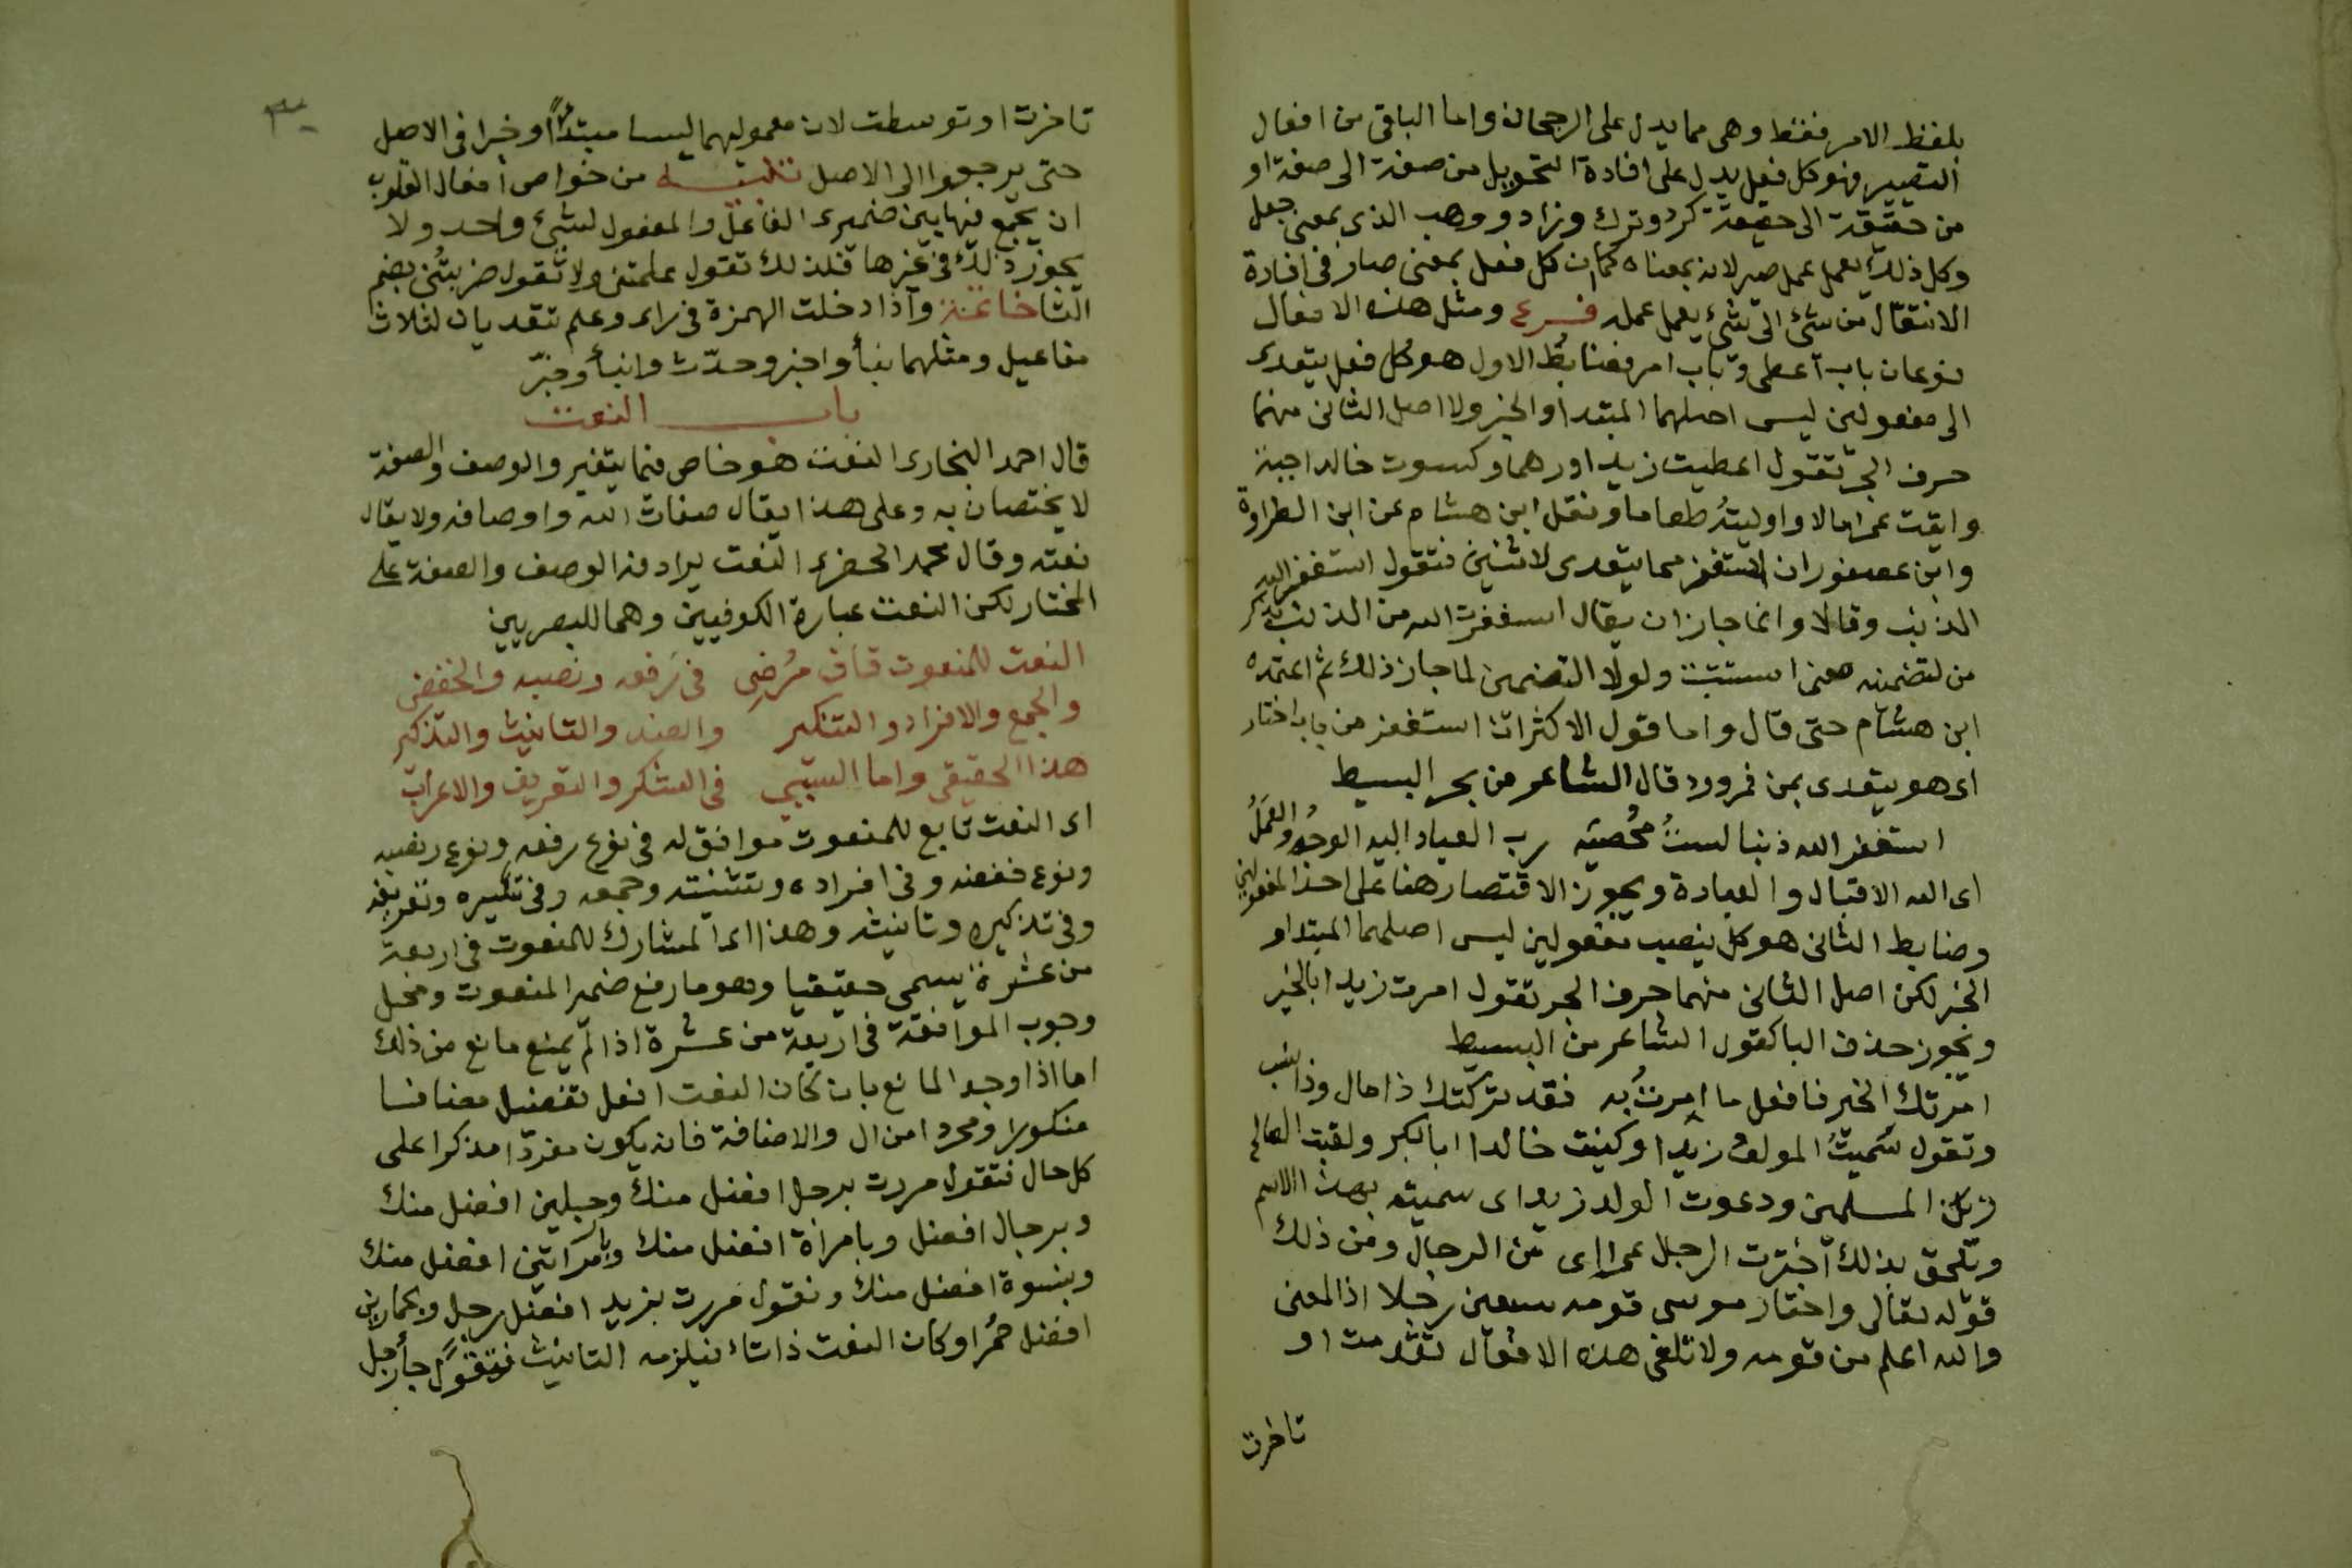 بلفظ الامر فقط وهى مما يدل على الرجحان واما الباقى من افعال
التصيير فهو كل فعل يدل على افادة التحويل من صفة الى صفة او
من حقيقة الى حقيقة كرد وترك وزاد ووهب الذى بمعنى جعل
وكل ذلك يعمل عمل صير لانه بمعناه كما ان كل فعل بمعنى صار فى افادة
الانتقال من شئ الى شئ يعمل عمله فرع ومثل هذه الافعال
نوعان باب اعطى وباب امر فضابط الاول هو كل فعل يتعدى
الى مفعولين ليس اصلهما المبتدا والخبر ولا اصل الثانى منهما
حرف الجر تقول اعطيت زيدا درهما وكسوت خالدا جبة
واتيت عمرا مالا واوليته طعاما ونقل ابن هشام عن ابن الطراوة
وابن عصفور ان استغفر مما يتعدى لاثنين فتقول استغفر الله
الذنب وقالا وانما جاز ان يقال استغفرت الله من الذنب بذكر
من لتضمنه معنى استتبت ولولا التضمين لما جاز ذلك ثم اعتمده
ابن هشام حتى قال واما قول الاكثر ان استغفر من باب اختار
اى هو يتعدى بمن فمردود قال الشاعر من بحر البسيط
استغفر الله ذنبا لستُ مُحصيَه رب العباد اليه الوجهُ والعَمَلُ
اى الله الاقبال والعبادة ويجوز الاقتصار هنا على احد المفعولين
وضابط الثانى هو كل ينصب مفعولين ليس اصلهما المبتدا و
الخبر لكن اصل الثانى منهما حرف الجر تقول امرت زيدا بالخير
ويجوز حذف البا كقول الشاعر من البسيط
امرتك الخير فافعل ما امرتُ به فقد تركتك ذا مال وذا نشب
وتقول سَميتُ المولود زيدا وكنيت خالدا ابا بكر ولقبت العالم
زين المسلمين ودعوت الولد زيدا اى سميته بهذا الاسم
ويلحق بذلك اخترت الرجل عمرا اى من الرجال ومن ذلك
قوله تعالى واختار موسى قومه سبعين رجلا اذ المعنى
والله اعلم من قومه ولا تلغى هذه الافعال تقدمت او
تاخرت
تاخرت او توسطت لان معموليهما ليسا مبتدأً او خبرا فى الاصل
حتى يرجعوا الى الاصل تنبيه من خواص افعال القلوب
ان يجمع فيها بين ضميرى الفاعل والمفعول لشئ واحد ولا
يجوز ذلك فى غيرها فلذلك تقول علمتنى ولا تقول ضربتُنى بضم
التا خاتمة واذا دخلت الهمزة فى راى وعلم تتعديان لثلاث
مفاعيل ومثلهما نبأ واخبر وحدّث وانبأ وخبّر
باب النعت
قال احمد البخارى النعت هو خاص فيما يتغير والوصف والصفة
لا يختصان به وعلى هذا يقال صفات الله واوصافه ولا يقال
نعته وقال محمد الخضرى النعت يرادفه الوصف والصفة على
المختار لكن النعت عبارة الكوفيين وهما للبصريين
النعت للمنعوت قاف مُرضى فى رَفعه ونصبه والخفض
والجمع والافراد والتنكير والضد والتانيث والتذكير
هذا الحقيقى واما السببى فى النكر والتعريف والاعراب
اى النعت تابع للمنعوت موافق له فى نوع رفعه ونوع نصبه
ونوع خفضه وفى افراده وتثنيته وجمعه وفى تنكيره وتعريفه
وفى تذكيره وتانيثه وهذا اى المشارك للمنعوت فى اربعة
من عشرة يسمى حقيقيا وهو ما رفع ضمير المنعوت ومحل
وجوب الموافقة فى اربعة من عشرة اذا لم يمنع مانع من ذلك
اما اذا وجد المانع بان كان النعت افعل تفضيل مضافا
منكورا ومجردا من ال والاضافة فانه يكون مفردا مذكرا على
كل حال فتقول مررت برجل افضل منك وبرجلين افضل منك
وبرجال افضل وبامراة افضل منك وبامراتين افضل منك
وبنسوة افضل منك وتقول مررت بزيد افضل رجل وبحمارين
افضل حمُر او كان النعت ذا تاء فيلزمه التانيث فتقول جا رجل